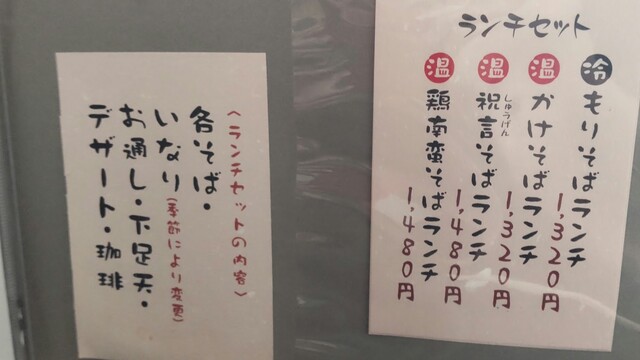 ランチセット
冷 もりそばランチ 1,320円
温 かけそばランチ 1,320円
温 祝言そばランチ 1,480円
しゅうげん
温 鶏南蛮そばランチ 1,480円
〈ランチセットの内容〉
各そば・
いなり(季節により変更)
お通し・下足天・
デザート・珈琲